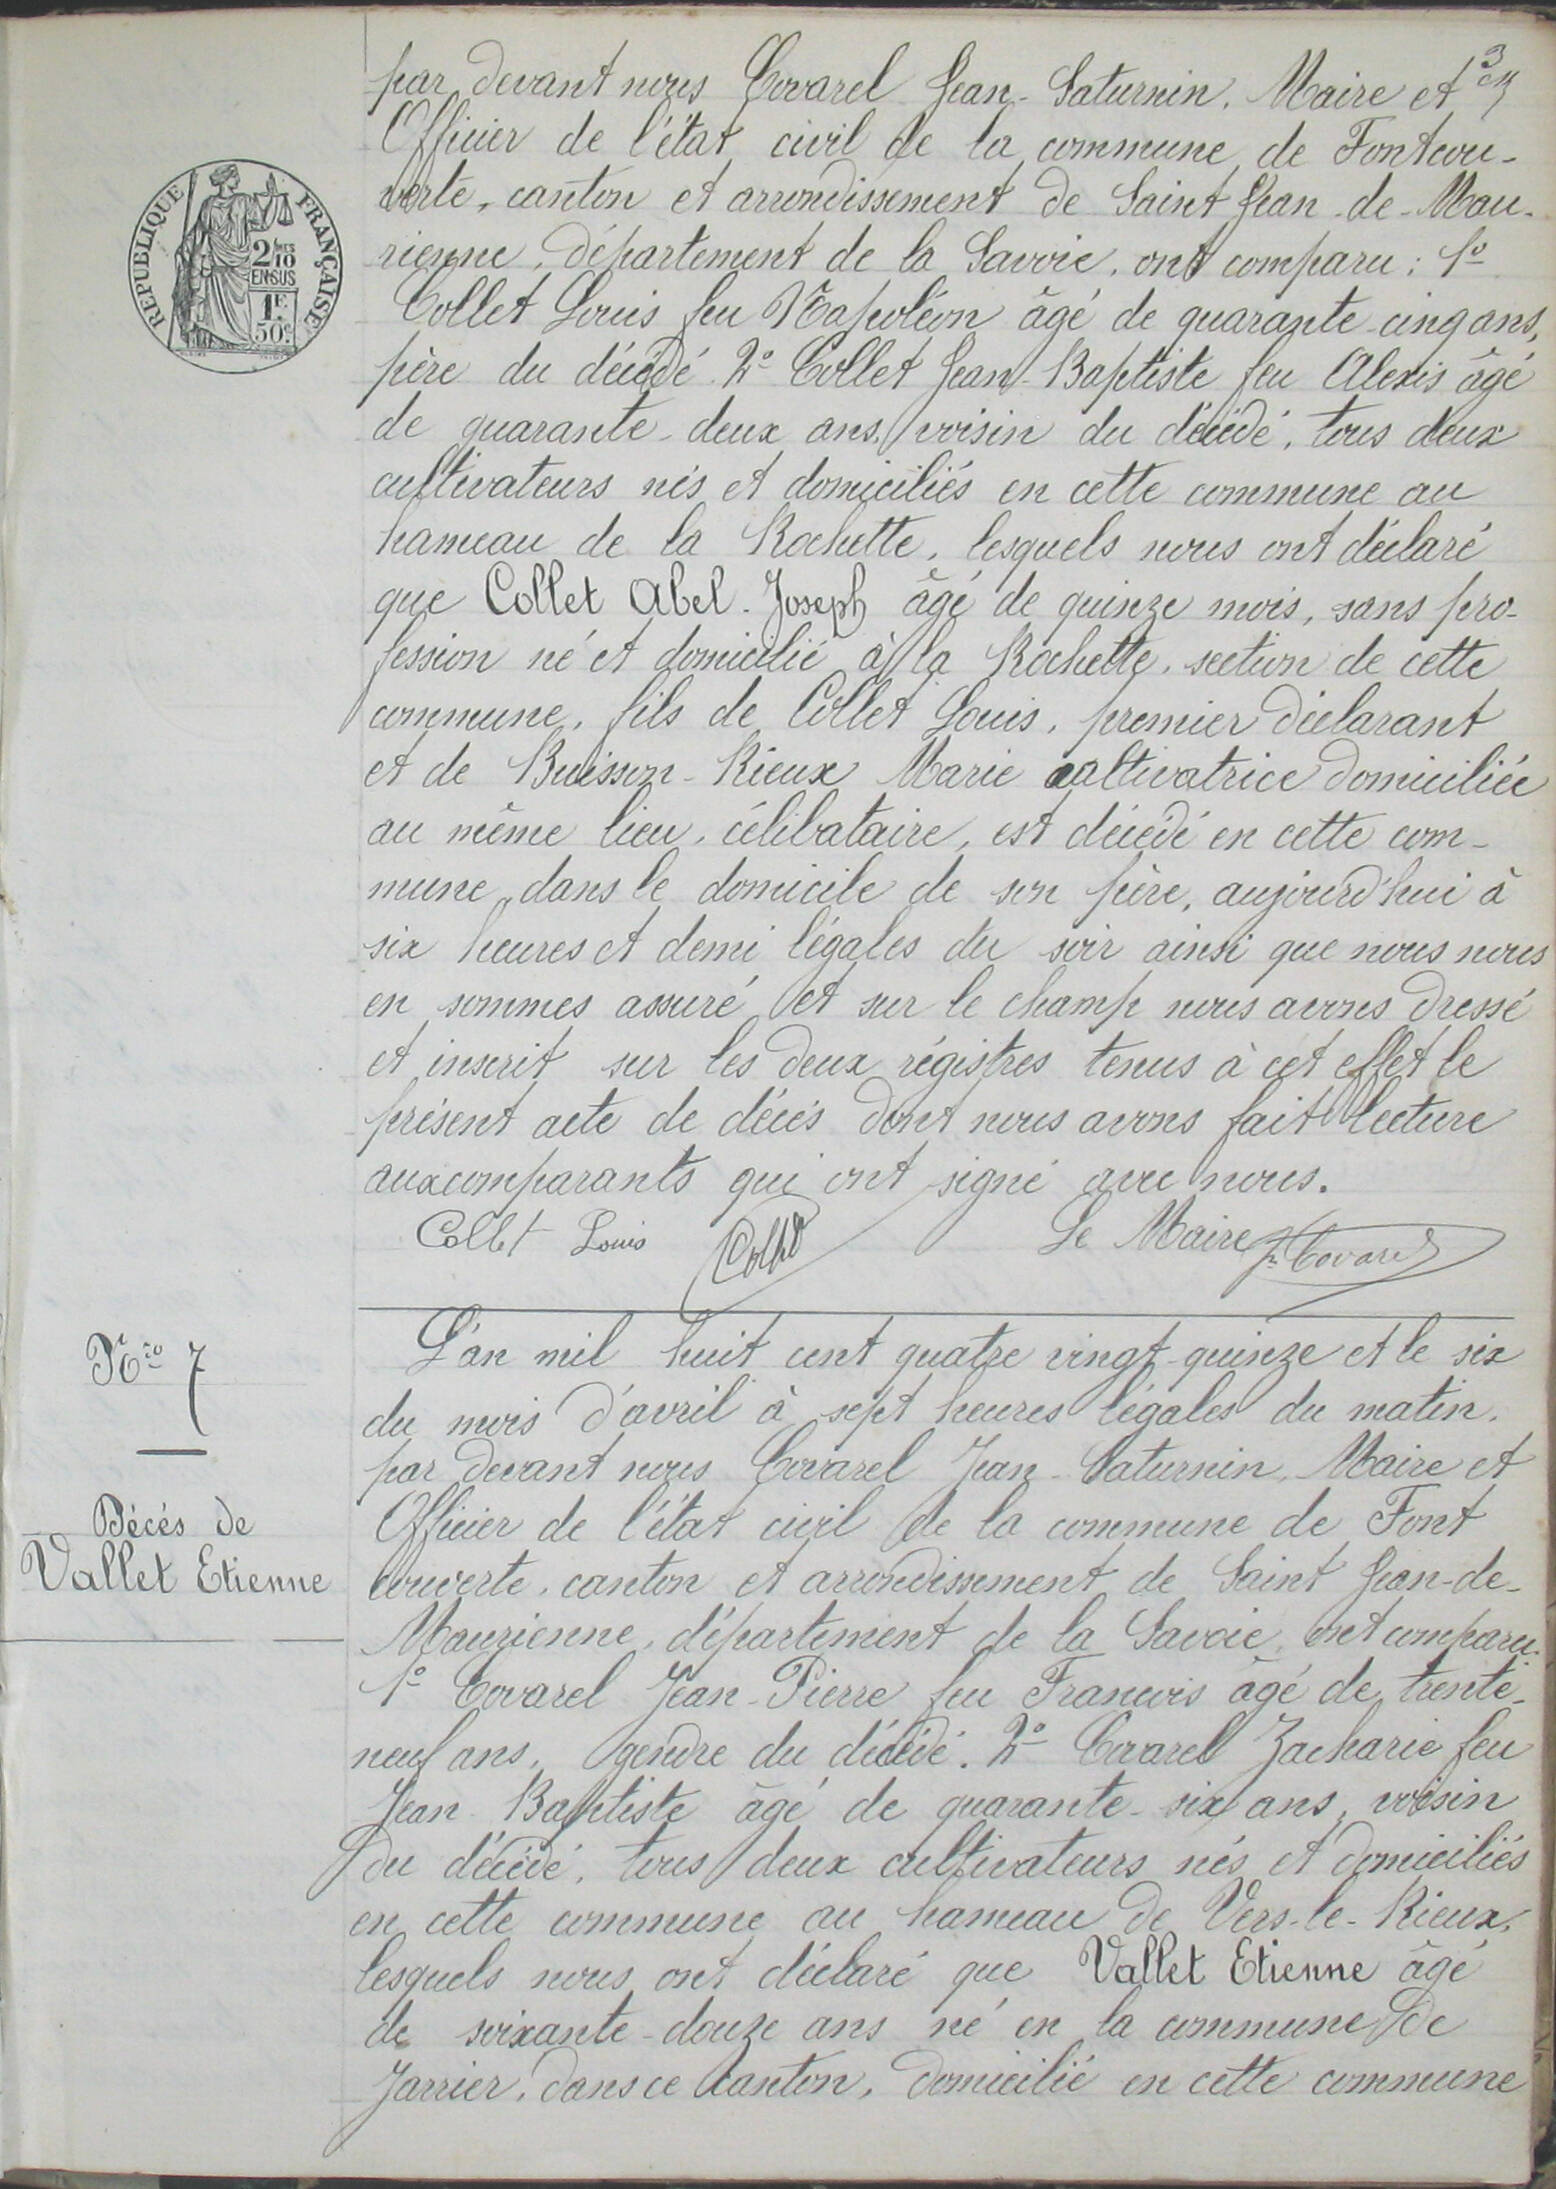 3
par devant nous Covarel Jean-Saturnin, Maire et
Officier de l'état civil de la commune de Fontcou-
verte, canton et arrondissement de Saint Jean-de-Mau-
rienne, département de la Savoie, ont comparu : 1º
Collet Louis feu Napoléon âgé de quarante-cinq ans,
père du décédé 2º Collet Jean-Baptiste feu Alexis âgé
de quarante-deux ans, voisin du décédé, tous deux
cultivateurs nés et domiciliés en cette commune au
hameau de la Rochette, lesquels nous ont déclaré
que Collet Abel-Joseph âgé de quinze mois, sans pro-
fession né et domicilié à la Rochette, section de cette
commune, fils de Collet Louis, premier déclarant
et de Buisson-Rieux Marie cultivatrice domiciliée
au même lieu, célibataire, est décédé en cette com-
mune, dans le domicile de son père, aujourd'hui à
six heures et demi légales du soir ainsi que nous nous
en sommes assuré et sur le champ nous avons dressé
et inscrit sur les deux régistres tenus à cet effet le
présent acte de décès dont nous avons fait lecture
aux comparants qui ont signé avec nous.
Collet Louis Collet Le Maire Jn Covarel
REPUBLIQUE FRANÇAISE
2/10 EN SUS
1F 50c
Nro 7
Décés de
Vallet Etienne
L'an mil huit cent quatre vingt-quinze et le six
du mois d'avril à sept heures légales du matin,
par devant nous Covarel Jean-Saturnin, Maire et
Officier de l'état civil de la commune de Font
couverte, canton et arrondissement de Saint Jean-de-
Maurienne, département de la Savoie, ont comparu
1º Covarel Jean-Pierre feu François âgé de trente-
neuf ans, gendre du décédé. 2º Covarel Zacharie feu
Jean Baptiste âgé de quarante-six ans, voisin
du décédé, tous deux cultivateurs nés et domiciliés
en cette commune au hameau de Vers-le-Rieux,
lesquels nous ont déclaré que Vallet Etienne âgé
de soixante-douze ans né en la commune de
Jarrier, dans ce canton, domicilié en cette commune